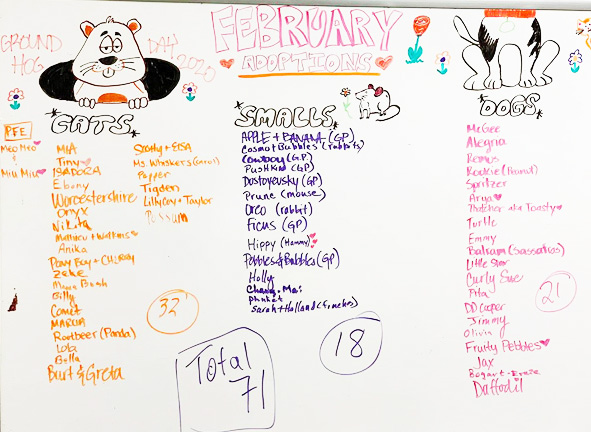 GROUND
HOG
DAY
2020
FEBRUARY
ADOPTIONS
PFE
Meo Meo
+
Miu Miu
CATS
MIA
Tiny
ISADORA
Ebony
Worcestershire
Onyx
Nikita
Mathieu + Watkins
Anika
Pony Boy +
Zeke
Billy
Comet
MARCIA
Rootbeer (Panda)
Lola
Bella
Burt & Greta
Scotty + ROSA
Ms. Whiskers (Carol)
Pepper
Tigden
Lillycory + Taylor
Possum
32
SMALLS
APPLE + BANANA (GP)
Cosmo + Bubbles (rabbits)
Cowboy (GP)
PUSHKIN (GP)
Dostoyevsky (GP)
Prune (mouse)
Oreo (rabbit)
Ficus (GP)
Hippy (Hammy)
Pebbles & Bubbles (GP)
Holly
Chang Mai
Phuket
Sarah + Holland (finches)
18
Total
71
DOGS
McGee
Alegria
Remus
Rookie (Peanut)
Spritzer
Arya
Thatcher aka Toasty
Turtle
Emmy
Balkam (Sassafras)
Little Star
Curly Sue
Fita
DD Cooper
Jimmy
Olivia
Fruity Pebbles
Jax
Bogart - Ernie
Daffodil
21